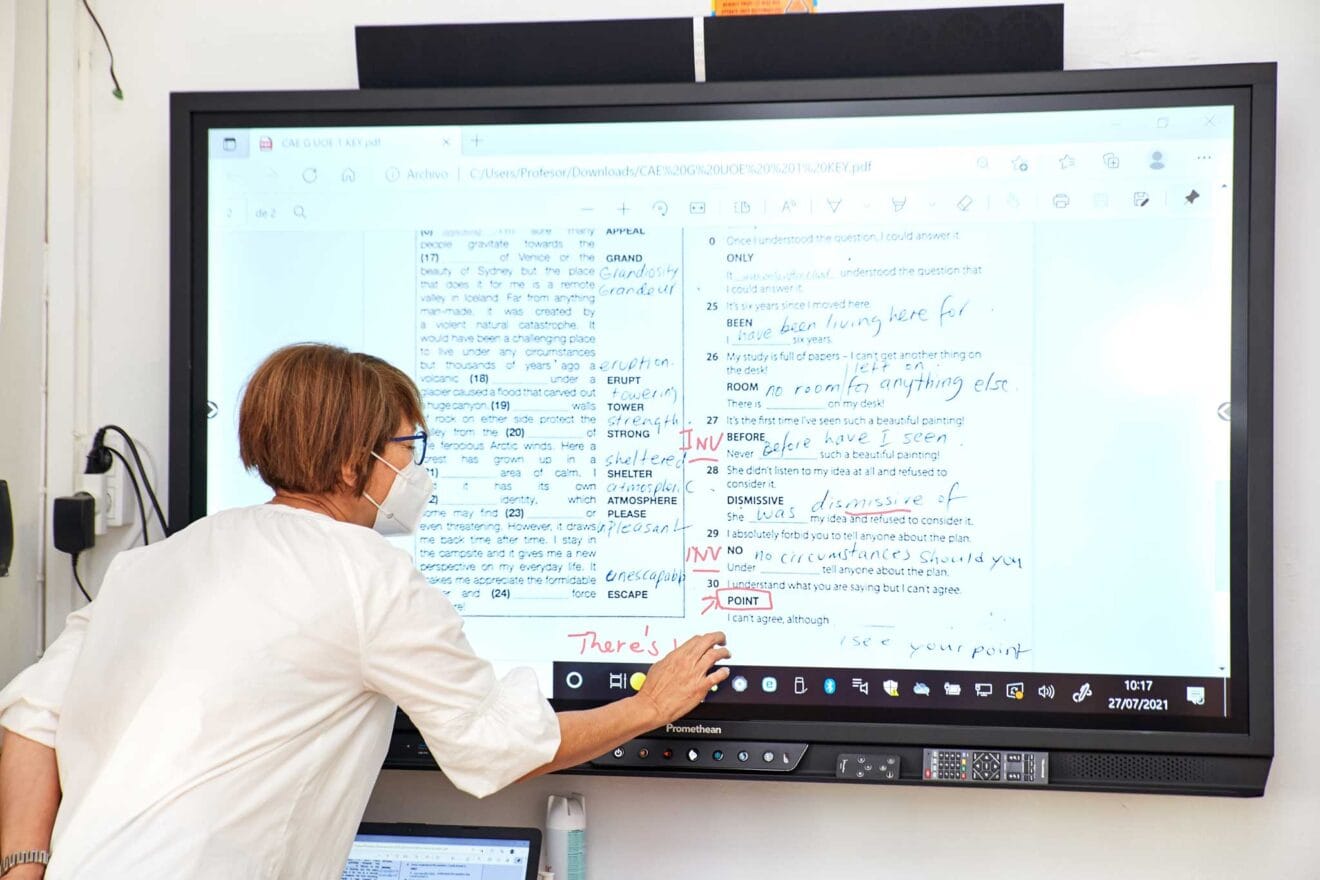 CAE G UOE 1 KEY.pdf
Archivo C:/Users/Profesor/Downloads/CAE%20G%20UOE%20%201%20KEY.pdf
2 de 2
sure many APPEAL
people gravitate towards the
(17) of Venice or the GRAND
beauty of Sydney but the place Grandiosity
that does it for me is a remote Grandeur
valley in Iceland. Far from anything
man-made, it was created by
a violent natural catastrophe. It
would have been a challenging place
to live under any circumstances
but thousands of years ago a eruption.
volcanic (18) under a ERUPT
glacier caused a flood that carved out towering
huge canyon. (19) walls TOWER
rock on either side protect the strength.
from the (20) of STRONG
ferocious Arctic winds. Here a
has grown up in a sheltered
area of calm. I SHELTER
it has its own atmospheric
identity, which ATMOSPHERE
some may find (23) or PLEASE
even threatening. However, it draws pleasant
me back time after time. I stay in
the campsite and it gives me a new
perspective on my everyday life. It
makes me appreciate the formidable unescapabl
and (24) force ESCAPE
0 Once I understood the question, I could answer it.
ONLY
It understood the question that
I could answer it.
25 It's six years since I moved here.
BEEN have been living here for
I six years.
26 My study is full of papers – I can't get another thing on
the desk! left on
ROOM no room for anything else
There is on my desk!
27 It's the first time I've seen such a beautiful painting!
INV BEFORE Before have I seen
Never such a beautiful painting!
28 She didn't listen to my idea at all and refused to
consider it.
DISMISSIVE was dismissive of
She my idea and refused to consider it.
29 I absolutely forbid you to tell anyone about the plan.
INV NO no circumstances should you
Under tell anyone about the plan.
30 I understand what you are saying but I can't agree.
POINT
I can't agree, although
I see your point
There's
10:17
27/07/2021
Promethean